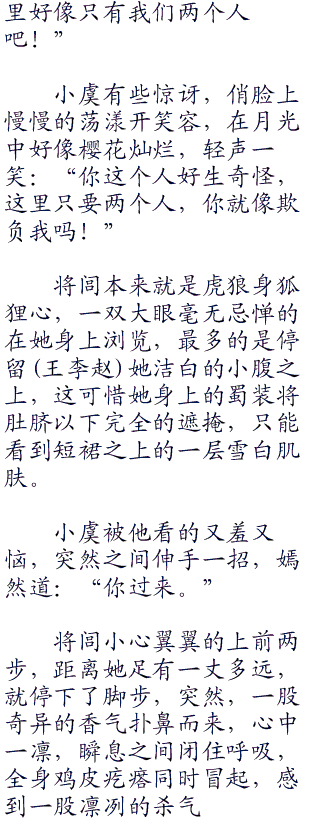 里好像只有我们两个人
吧！”
小虞有些惊讶，俏脸上
慢慢的荡漾开笑容，在月光
中好像樱花灿烂，轻声一
笑：“你这个人好生奇怪，
这里只要两个人，你就像欺
负我吗！”
将闾本来就是虎狼身狐
狸心，一双大眼毫无忌惮的
在她身上浏览，最多的是停
留(王李赵)她洁白的小腹之
上，这可惜她身上的蜀装将
肚脐以下完全的遮掩，只能
看到短裙之上的一层雪白肌
肤。
小虞被他看的又羞又
恼，突然之间伸手一招，嫣
然道：“你过来。”
将闾小心翼翼的上前两
步，距离她足有一丈多远，
就停下了脚步，突然，一股
奇异的香气扑鼻而来，心中
一凛，瞬息之间闭住呼吸，
全身鸡皮疙瘩同时冒起，感
到一股凛冽的杀气